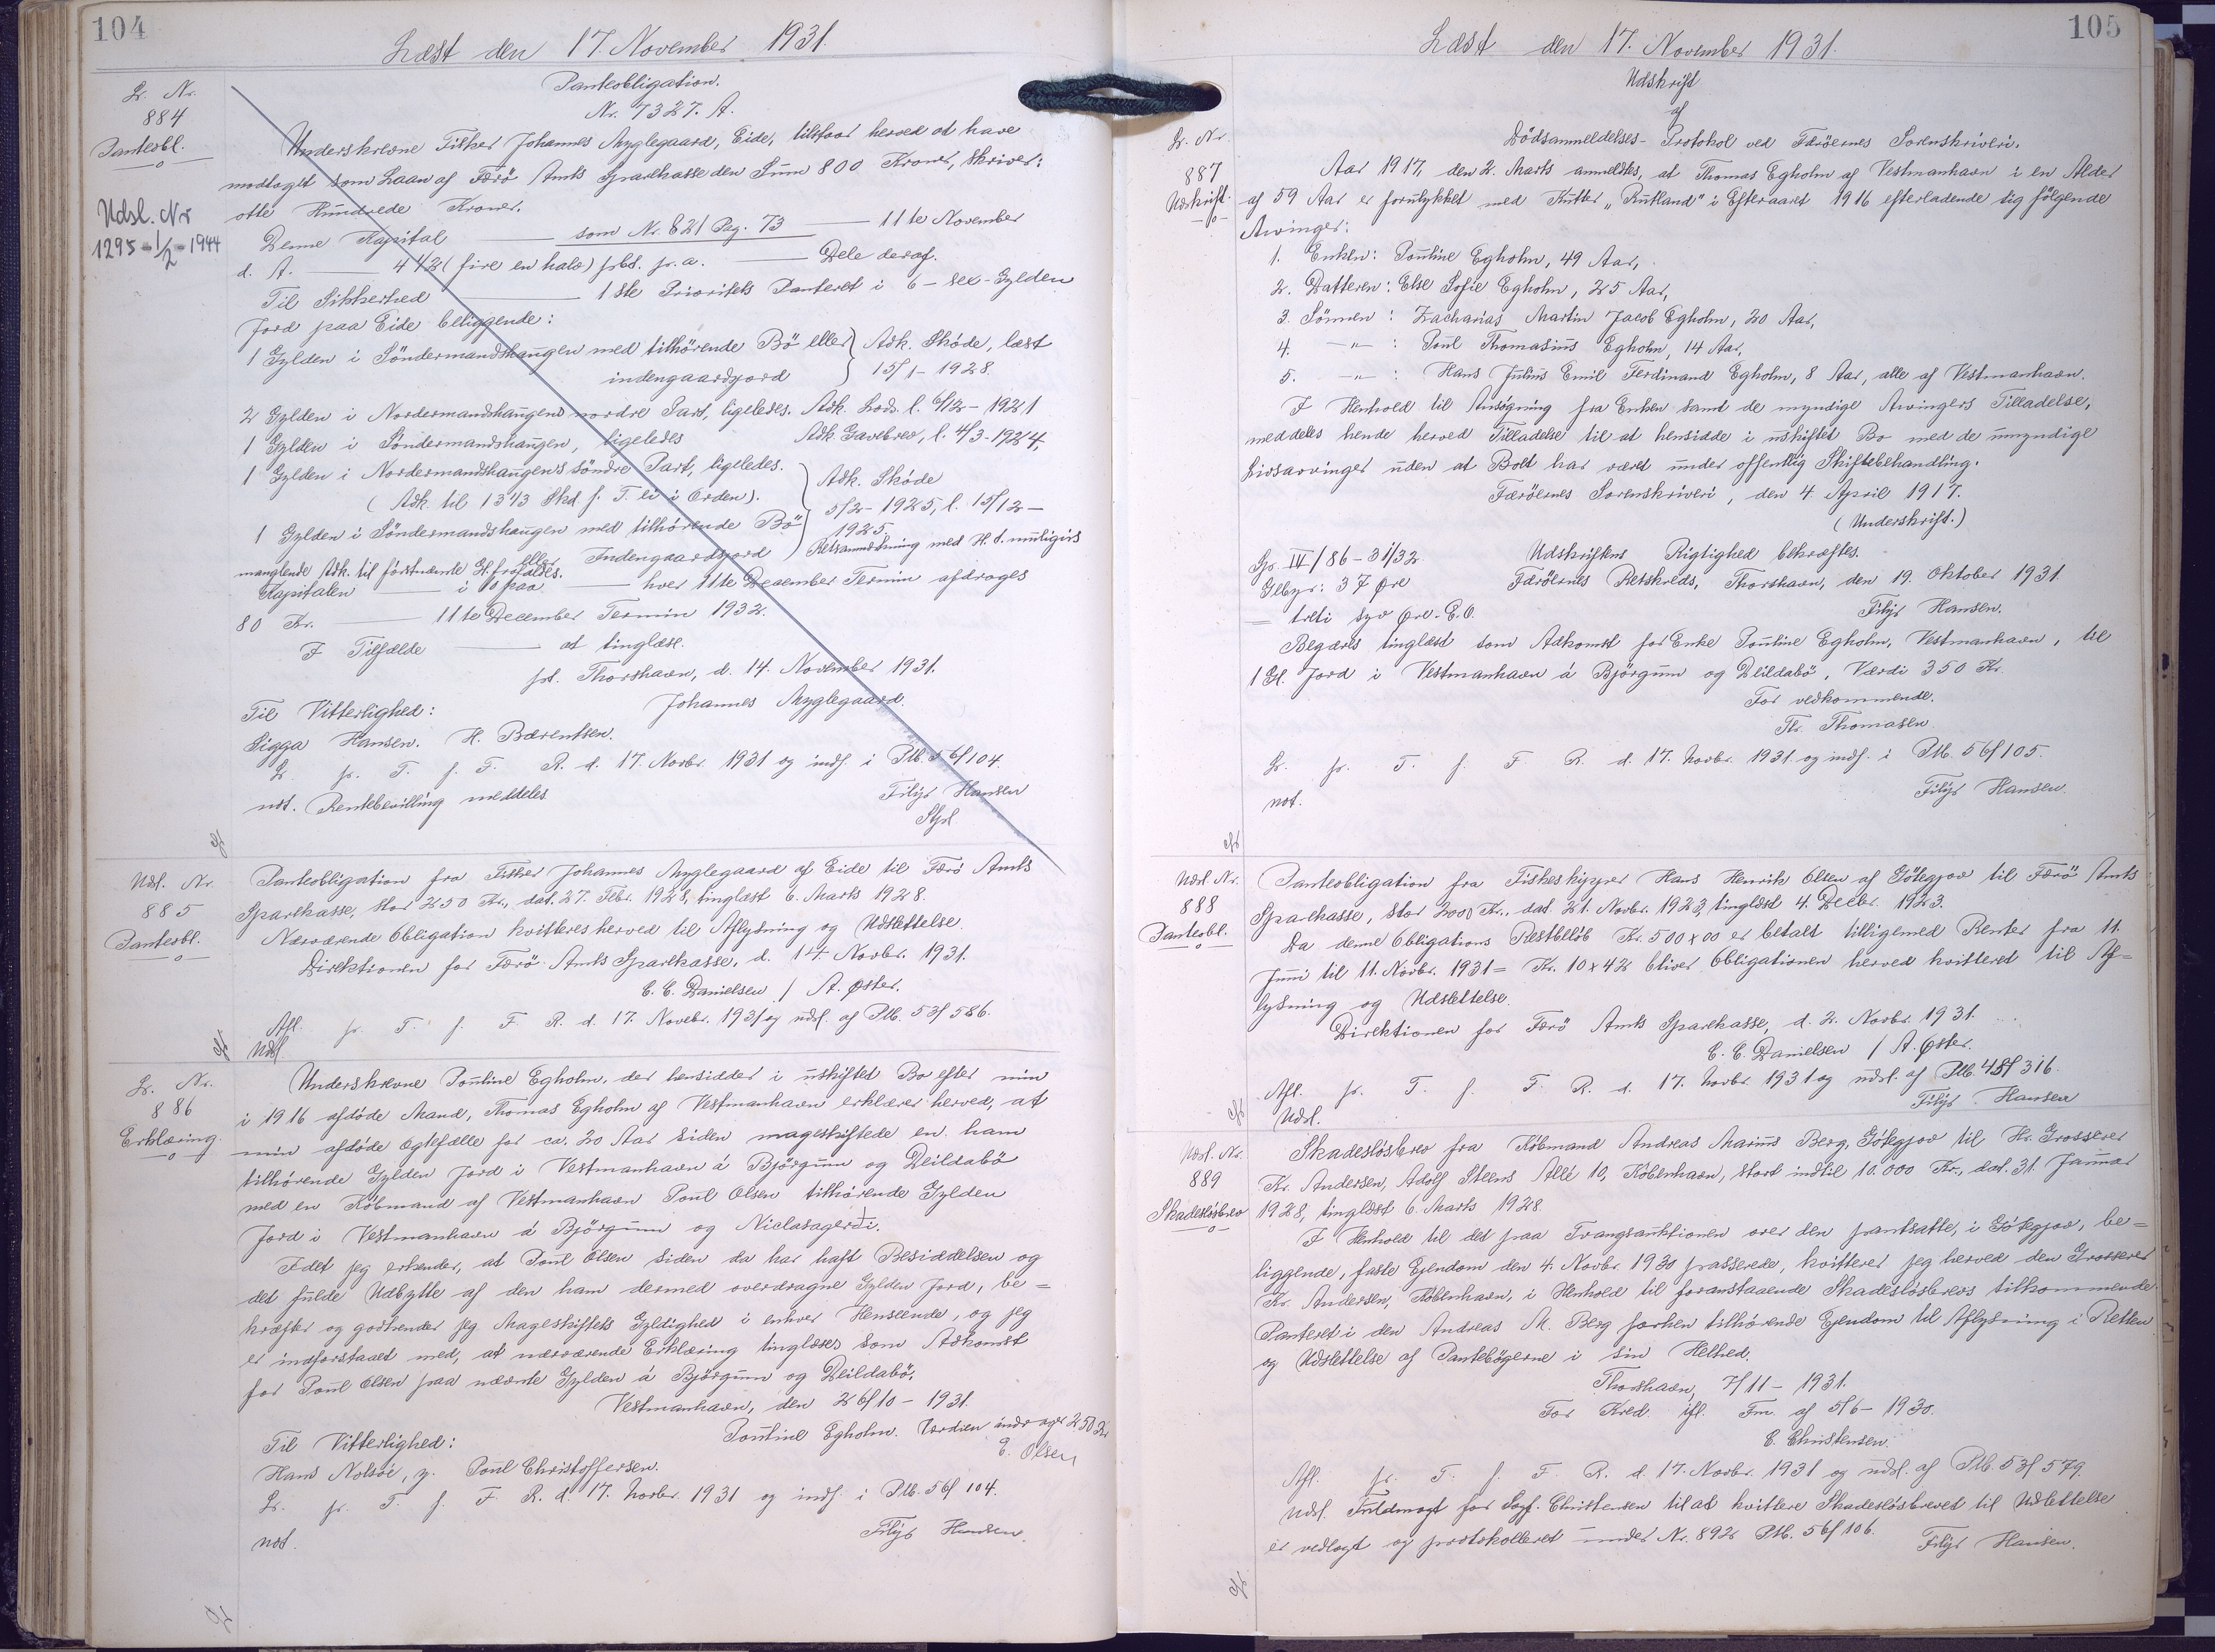 104
Læst den 17. November 1931.
L. Nr.
884
Pantobl.
Udsl. Nr
1295-1/2-1944
Panteobligation.
Nr. 7327. A.
Underskrevne Fisker Johannes Myglegaard, Eide, tilstaar herved at have
modtaget som Laan af Færö Amts Sparekasse den Sum 800 Kroner, skriver:
otte Hundrede Kroner.
Denne Kapital — som Nr. 821 Pag. 73 — 11te November
d. A. — 4 1/2 (fire en halv) pCt. p. a. — Dele deraf.
Til Sikkerhed — 1ste Prioritets Panteret i 6 – sex – Gylden
Jord paa Eide beliggende:
1 Gylden i Söndermandshaugen med tilhörende Bö eller } Adk. Sköde, læst
indengaardsjord } 15/1 - 1928.
2 Gylden i Nordermandshaugens nordre Part, ligeledes. Adk. Lods. l. 6/12 - 1921
1 Gylden i Söndermandshaugen, ligeledes Adk. Gavebrev, l. 4/3 - 1924,
1 Gylden i Nordermandshaugens söndre Part, ligeledes. } Adk. Sköde
(Adk. til 13 1/3 Skd f. T. er i Orden). } 5/2 - 1925, l. 15/12 -
1 Gylden i Söndermandshaugen med tilhörende Bö } 1925.
eller Indengaardsjord ) Retsanmærkning med H. t. muligvis
manglende Adk. til förstnævnte Gl. frafaldes.
Kapitalen — i 10 paa — hver 11te December Termin afdrages
80 Kr. — 11te December Termin 1932.
I Tilfælde — at tinglæse.
pt. Thorshavn, d. 14. November 1931.
Johannes Myglegaard.
Til Vitterlighed:
Sigga Hansen. H. Bærentsen.
L. p. T. f. F. R. d. 17. Novbr. 1931 og indf. i Ptb. 56/104.
not. Rentebevilling meddeles
Filip Hansen
Udsl. Nr.
885
Pantobl.
Panteobligation fra Fisker Johannes Myglegaard af Eide til Færö Amts
Sparekasse, stor 250 Kr., dat. 27. Febr. 1928, tinglæst 6. Marts 1928.
Nærværende Obligation kvitteres herved til Aflysning og Udslettelse.
Direktionen for Færö Amts Sparekasse, d. 14. Novbr. 1931.
C. C. Danielsen / A. Øster.
Afl. p. T. f. F. R. d. 17. Novebr. 1931 og udsl. af Ptb. 53/586.
Udsl.
L. Nr.
886
Erklæring.
Underskrevne Pouline Egholm, der hensidder i uskiftet Bo efter min
i 1916 afdöde Mand, Thomas Egholm af Vestmanhavn erklærer herved, at
min afdöde Ægtefælle for ca. 20 Aar siden mageskiftede en ham
tilhörende Gylden Jord i Vestmanhavn á Björgum og Deildabö
med en Köbmand af Vestmanhavn Poul Olsen tilhörende Gylden
Jord i Vestmanhavn á Björgum og Niclasagerdi.
Idet jeg erkender, at Poul Olsen siden da har haft Besiddelsen og
det fulde Udbytte af den ham dermed overdragne Gylden Jord, be=
kræfter og godkender jeg Mageskiftets Gyldighed i enhver Henseende, og jeg
er indforstaaet med, at nærværende Erklæring tinglæses som Adkomst
for Poul Olsen paa nævnte Gylden á Björgum og Deildabö.
Vestmanhavn, den 26/10 - 1931.
Pouline Egholm. Værdien andrager 250 Kr
E. Olsen
Til Vitterlighed:
Hans Nolsöe, y. Poul Christoffersen.
L. p. T. f. F. R. d. 17. Novbr. 1931 og indf. i Ptb. 56/104.
not.
Filip Hansen.
105
Læst den 17. November 1931.
L. Nr.
887
Udskrift.
Udskrift
af
Dödsanmeldelses-Protokol ved Færöernes Sorenskriveri.
Aar 1917, den 2. Marts anmeldtes, at Thomas Egholm af Vestmanhavn i en Alder
af 59 Aar er forulykket med Kutter „Rutland" i Efteraaret 1916 efterladende sig fölgende
Arvinger:
1. Enken: Pouline Egholm, 49 Aar,
2. Datteren: Else Sofie Egholm, 25 Aar,
3. Sönnen: Zacharias Martin Jacob Egholm, 20 Aar,
4. —„— : Poul Thomasius Egholm, 14 Aar,
5. —„— : Hans Julius Emil Ferdinand Egholm, 8 Aar, alle af Vestmanhavn.
I Henhold til Ansögning fra Enken samt de myndige Arvingers Tilladelse,
meddeles hende herved Tilladelse til at hensidde i uskiftet Bo med de umyndige
Livsarvinger uden at Boet har været under offentlig Skiftebehandling.
Færöernes Sorenskriveri, den 4. April 1917.
(Underskrift.)
Gp. IV/86 - 31/32 Udskriftens Rigtighed bekræftes.
Gebyr: 37 Øre Færöernes Retskreds, Thorshavn, den 19. Oktober 1931.
= treti syv Øre. E.O. Filip Hansen.
Begæres tinglæst som Adkomst for Enke Pouline Egholm, Vestmanhavn, til
1 Gl. Jord i Vestmanhavn á Björgum og Deildabö, Værdi 350 Kr.
For vedkommende.
Thomasen.
L. p. T. f. F. R. d. 17. Novbr. 1931. og indf. i Ptb. 56/105.
not.
Filip Hansen.
Udsl. Nr.
888
Pantobl.
Panteobligation fra Fiskeskipper Hans Henrik Olsen af Götegjov til Færö Amts
Sparekasse, stor 2000 Kr., dat. 21. Novbr. 1923, tinglæst 4. Decbr. 1923.
Da denne Obligations Restbelöb Kr. 500 x 00 er betalt tilligemed Renter fra 11.
Juni til 11. Novbr. 1931 = Kr. 10 x 42 bliver Obligationen herved kvitteret til Af=
lysning og Udslettelse.
Direktionen for Færö Amts Sparekasse, d. 2. Novbr. 1931.
C. C. Danielsen / A. Øster.
Afl. p. T. f. F. R. d. 17. Novbr. 1931 og udsl. af Ptb. 48/316.
Udsl.
Filip Hansen
Udsl. Nr.
889
Skadeslösbrev
Skadeslösbrev fra Köbmand Andreas Marius Berg, Götegjov til Hr. Grosserer
Kr. Andersen, Adolf Steens Allé 10, Köbenhavn, stort indtil 10.000 Kr., dat. 31. Januar
1928, tinglæst 6. Marts 1928.
I Henhold til det paa Tvangsauktionen over den pantsatte, i Götegjov, be=
liggende, faste Ejendom den 4. Novbr. 1930 passerede, kvitterer jeg herved den Grosserer
Kr. Andersen, Köbenhavn, i Henhold til foranstaaende Skadeslösbrevs tilkommende
Panteret i den Andreas M. Berg forhen tilhörende Ejendom til Aflysning i Retten
og Udslettelse af Pantebögerne i sin Helhed.
Thorshavn, 7/11 - 1931.
For Kred. ifl. Fm. af 5/6 - 1930.
C. Christensen.
Afl. p. T. f. F. R. d. 17. Novbr. 1931 og udsl. af Ptb. 53/579.
Udsl. Fuldmagt for Sagf. Christensen til at kvittere Skadeslösbrevet til Udslettelse
er vedlagt og protokolleret under Nr. 892 Ptb. 56/106.
Filip Hansen.